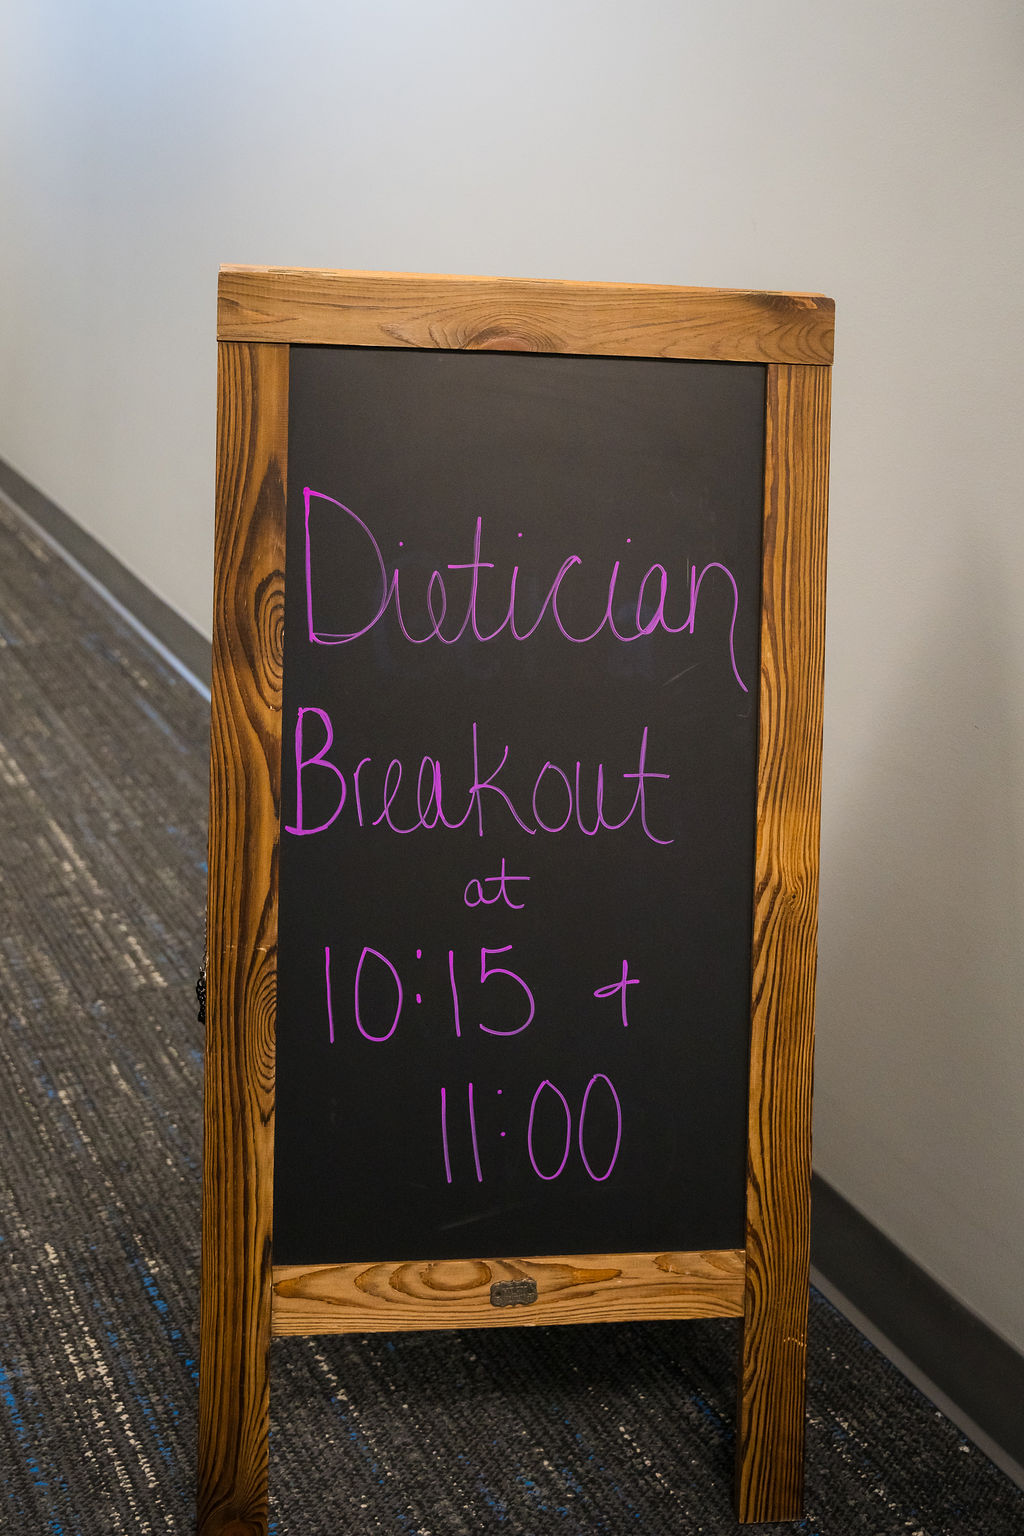 Dietician
Breakout
at
10:15 +
11:00